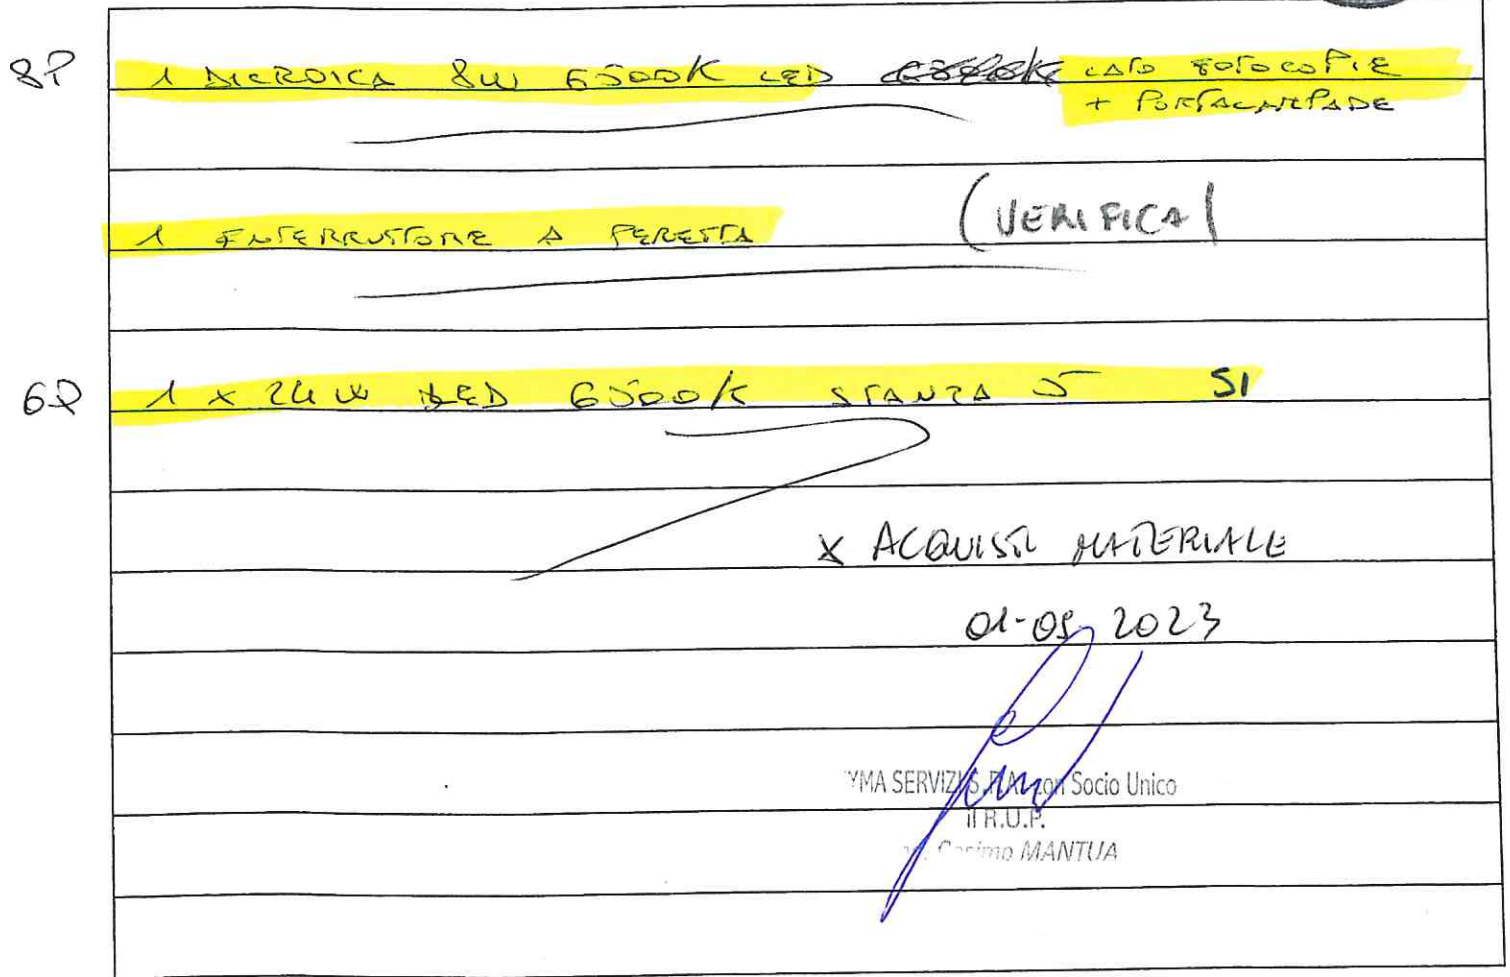 8P 1 DICROICA 8W 6500K LED LATO FOTOCOPIE
+ PORTALAMPADE
1 INTERRUTTORE A PERETTA (VERIFICA)
6P 1 x 24W LED 6500K STANZA 5 SI
x ACQUISTI MATERIALE
2023
YMA SERVIZI S.P.A. con Socio Unico
il R.U.P.
Cosimo MANTUA